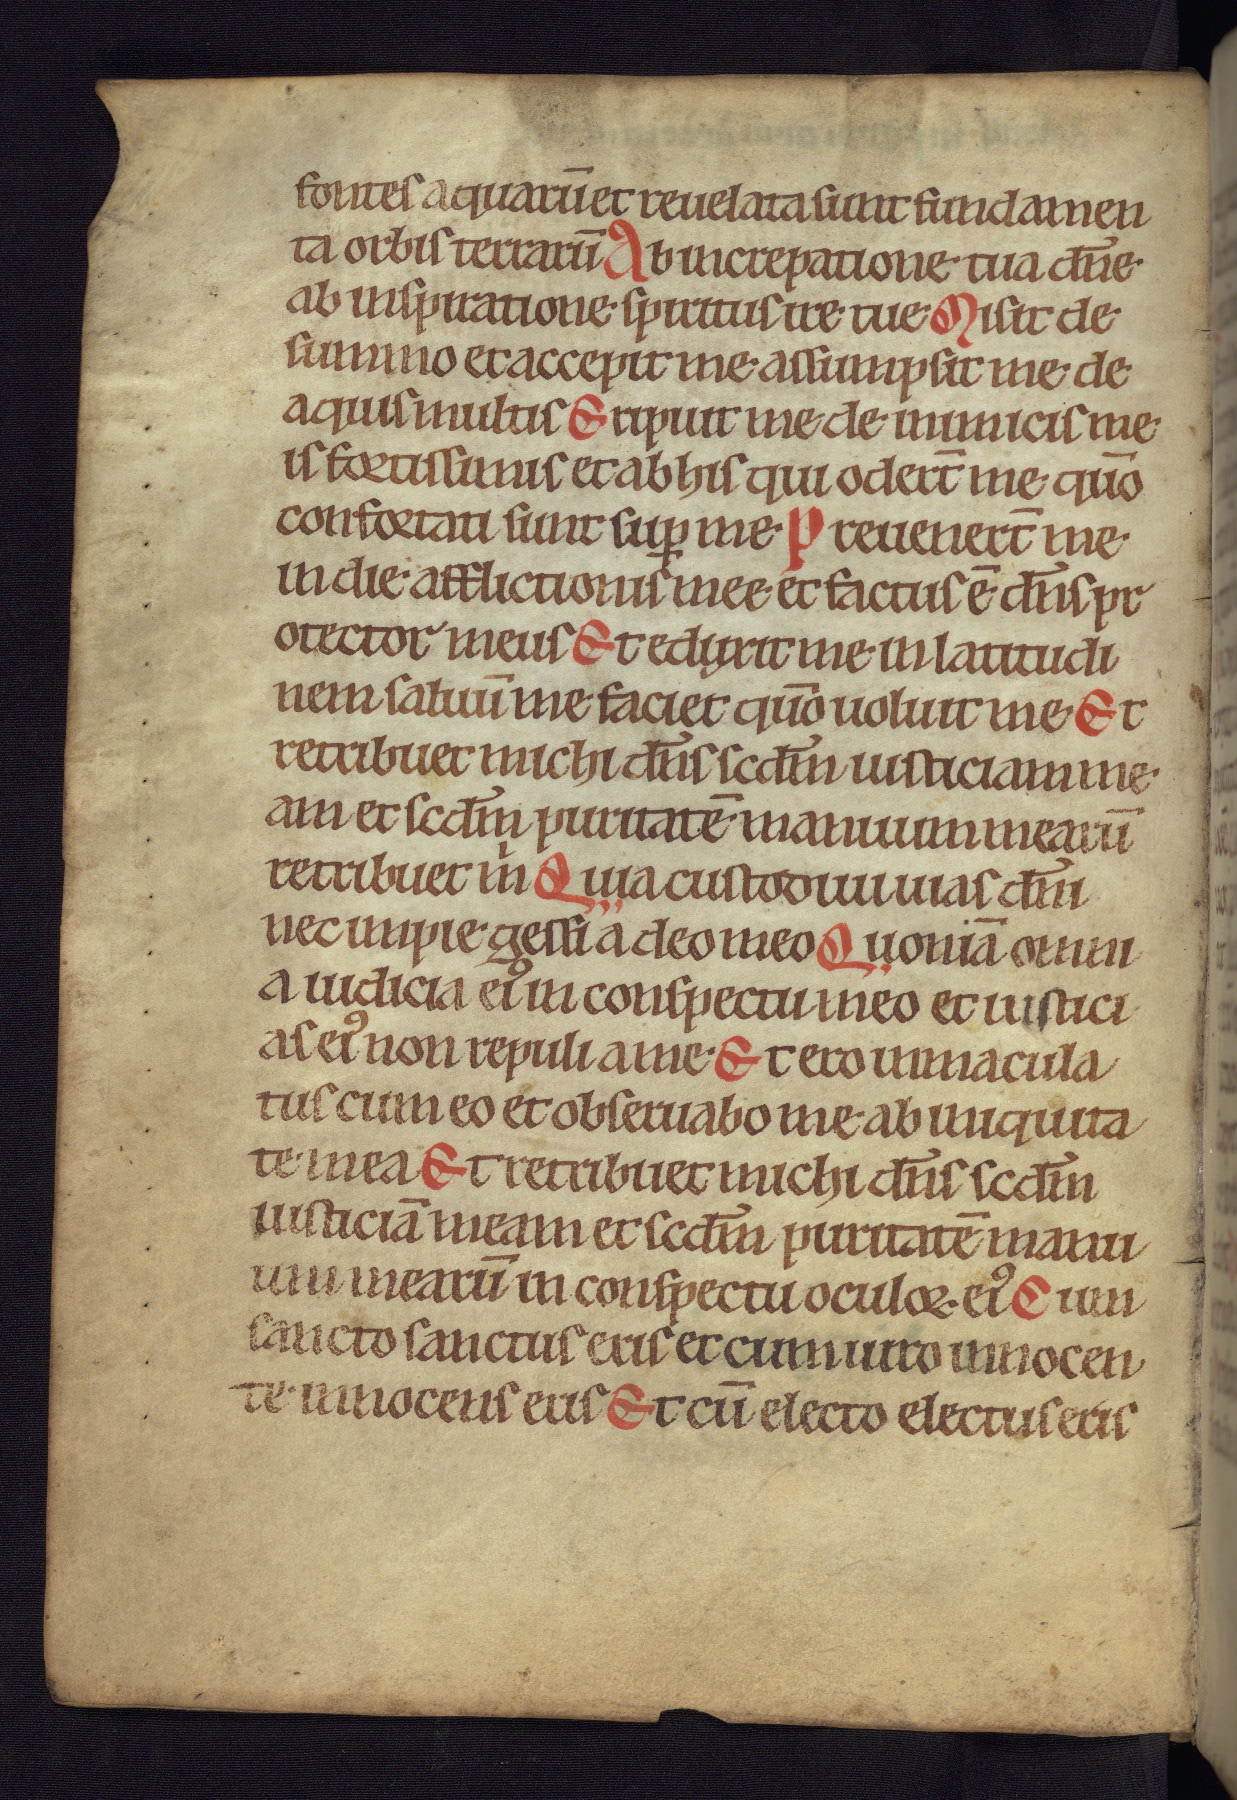 fontes aquarū et reuelata sunt fundamen
ta orbis terrarū Ab increpatione tua dñe
ab inspiratione spiritus ire tue Misit de
summo et accepit me assumpsit me de
aquis multis Eripuit me de inimicis me
is fortissimis et ab his qui odert̄ me qm̄o
confortati sunt sup me Preuenert̄ me
in die afflictionis mee et factus ē dn̄s pr
otector meus Et eduxit me in latitudi
nem saluū me faciet qūo uoluit me Et
retribuet michi dn̄s scdm̄ iusticiam me
am et scdm̄ puritatē manuum mearū
retribuet m̄ Quia custodiui uias dm̄i
nec impie gessi a deo meo Quoniā omni
a iudicia eiꝰ in conspectu meo et iustici
as eiꝰ non repuli a me Et ero inmacula
tus cum eo et obseruabo me ab iniquita
te mea Et retribuet michi dn̄s scdm̄
iusticiā meam et scdm̄ puritatē manu
um mearū in conspectu oculoꝝ eiꝰ Cum
sancto sanctus eris et cum uiro innocen
te innocens eris Et cū electo electus eris